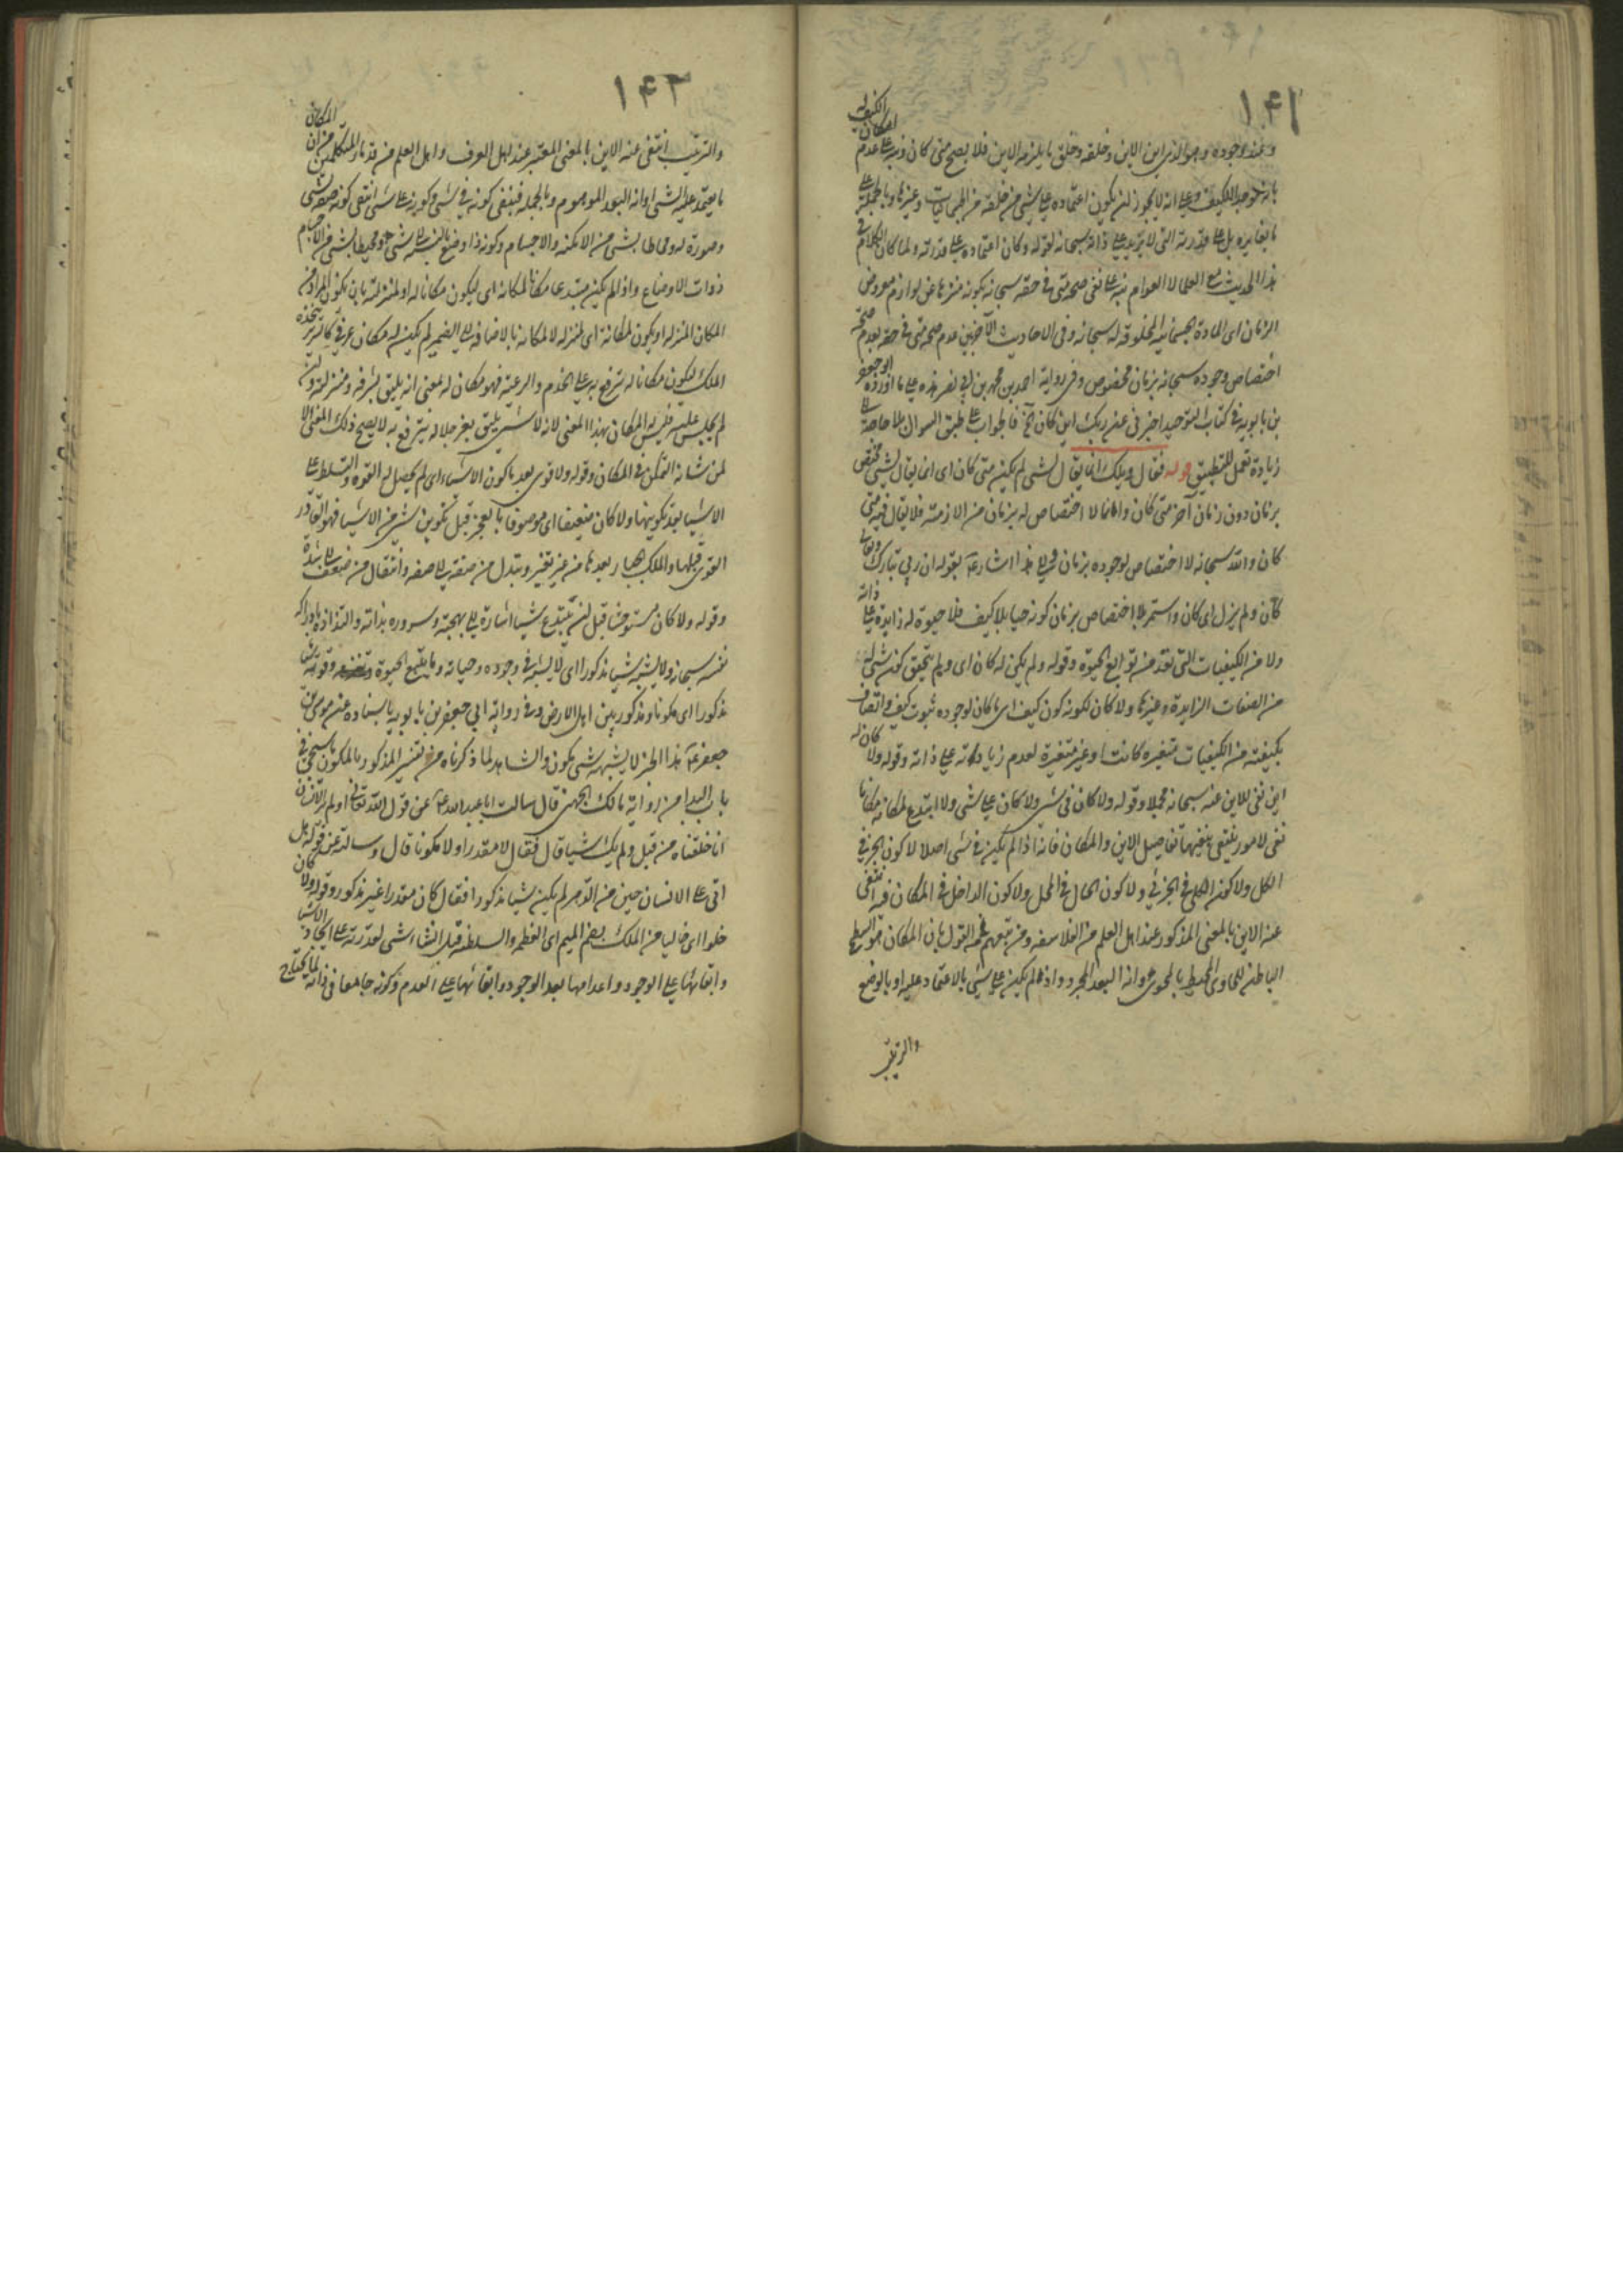 ١٤١
وعند وجوده وهو الذي اين الاين وخلقه وخلق ما يلزمه الاين فلا يصح متى كان ونبه على عدم
بانه موجد الكيف وعلى انه لا يجوز ان يكون اعتماده على شئ من خلقه من الجسمانيات وغيرها وبالجملة على
ما يغايره بل على قدرته التي لا تزيد على ذاته سبحانه لقوله وكان اعتماده على قدرته ولما كان الكلام في
هذا الحديث مع العلماء لا العوام نبه على نفي صحة متى في حقه سبحانه بكونه منزها عن لوازم معروض
الزمان اى المادة الجسمانية المخلوقة له سبحانه وفى الاحاديث الآخرين عدم صحة متى في حقه بعدم صحة
اختصاص وجوده سبحانه بزمان مخصوص وفى رواية احمد بن محمد بن ابى نصر هذه على ما اورده ابو جعفر
بن بابويه في كتاب التوحيد اخبرنى عن ربك اين كان الخ فالجواب على طبق السؤال بلا حاجة الى
زيادة تعمل للتطبيق قوله فقال ويلك انما يقال لشئ لم يكن متى كان اى انما يقال لشئ مختص
بزمان دون زمان آخر متى كان واما ما لا اختصاص له بزمان من الازمنة فلا يقال فيه متى
كان والله سبحانه لا اختصاص لوجوده بزمان والى هذا اشار ع بقوله ان ربي تبارك وتعالى
كان ولم يزل اى كان واستمر بلا اختصاص بزمان كونه حيا بلا كيف فلا حيوة له زايدة على ذاته
ولا من الكيفيات التى تعد من توابع الحيوة وقوله ولم يكن له كان اى ولم يتحقق كون شئ له
من الصفات الزايدة وغيرها ولا كان لكونه كون كيف اى ما كان لوجوده ثبوت كيف واتصاف
بكيفية من الكيفيات متغيره كانت او غير متغيرة لعدم زيادته على ذاته وقوله ولا كان له
اين نفى للاين عنه سبحانه مجملا وقوله ولا كان في شئ ولا كان على شئ ولا ابتدع لمكانه مكانا
نفى لامور ينتفى بنفيها تفاصيل الاين والمكان فانه اذا لم يكن في شئ اصلا لا كون الجزء في
الكل ولا كون الكلى في الجزئي ولا كون الحال في المحل ولا كون الداخل في المكان فيه انتفى
عنه الاين بالمعنى المذكور عند اهل العلم من الفلاسفه ومن تبعهم في القول بان المكان هو السطح
الباطن للحاوى المحيط بالمحوى او انه البعد المجرد واذا لم يكن على شئ بالاعتماد عليه او بالوضع
والترتيب
١٤٢
والترتيب انتفى عنه الاين بالمعنى المعتبر عند اهل العرف واهل العلم من قدماء المتكلمين من ان المكان
ما يعتمد عليه الشئ او انه البعد الموهوم وبالجملة فبنفى كونه في شئ وكونه على شئ انتفى كونه صفة لشئ
وصورة له ومحاطا بشئ من الامكنه والاجسام وكونه ذا وضع بالنسبة الى شئ ومحيطا بشئ من الاجسام
ذوات الاوضاع واذا لم يكن مبتدعا مكانا لمكانه اى ليكون مكانا له او لمنزلته بان يكون المراد من
المكان المنزله او يكون لمكانه اى لمنزله لا لمكانه بالاضافة الى الضمير لم يكن له مكان عرفى كالسرير يتخذه
الملك ليكون مكانا له يترفع به على الخدم والرعية فهو مكان له بمعنى انه يليق بشرفه ومنزلته وان
لم يجلس عليه فليس له المكان بهذا المعنى لانه لا شئ يليق بعز جلاله يترفع به لا يصح ذلك المعنى الا
لمن شانه التمكن في المكان وقوله ولا قوى بعد ما كون الاشياء اى لم يحصل له القوة والتسلط على
الاشياء بعد تكوينها ولا كان ضعيفا اى موصوفا بالعجز قبل تكوين شئ من الاشياء فهو القادر
القوى قبلها والملك الجبار بعدها من غير تغير وتبدل من صفة الى صفه وانتقال من ضعف الى شدة
وقوله ولا كان مستوحشا قبل ان يبتدع شيئا اشارة الى بهجته وسروره بذاته والتذاذه بادراكه
نفسه سبحانه ولا يشبه شيئا مذكورا اى لا يشبه في وجوده وحياته وما يتبع الحيوة وقوله شيئا
مذكورا اى مكونا ومذكورا بين اهل الارض وفى رواية ابي جعفر بن بابويه باسناده عن موسى بن
جعفر ع هذا الخبر لا يشبهه شئ مكون والشاهد لما ذكرناه من تفسير المذكور بالمكون ما سيجئ في
باب البدا من رواية مالك الجهنى قال سالت ابا عبد الله ع عن قول الله تعالى اولم ير الانسان
انا خلقناه من قبل ولم يك شيئا قال فقال لا مقدرا ولا مكونا قال وسالته عن قوله هل
اتى على الانسان حين من الدهر لم يكن شيئا مذكورا فقال كان مقدرا غير مذكور وقوله ولا كان
خلوا اى خاليا من الملك بضم الميم اى العظمه والسلطنه قبل انشاء شئ لقدرته على ايجاد الاشيا
وابقائها على الوجود واعدامها بعد الوجود وابقائها على العدم وكونه جامعا في ذاته لما يحتاج